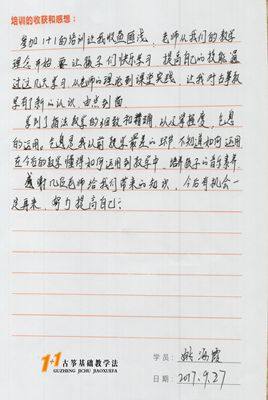 培训的收获和感想：
参加1+1的培训让我收益匪浅，老师从我们的教学
理念开始 要让孩子们快乐学习 提高自己的技能 通
过这几天学习 从老师的理论到课堂实践，让我对古筝教
学有了新的认识，由点到面
学到了指法教学的细致和精确，从力度强度，气息
的运用，气息是我从前教学最差的环节 不知道如何运用
在今后的教学懂得如何运用到教学中，培养孩子的音乐素养
感谢几位老师给我们带来的知识，今后有机会一
定再来，努力提高自己！
1+1古筝基础教学法
GUZHENG JICHU JIAOXUEFA
学员：海霞
日期：2017.9.27